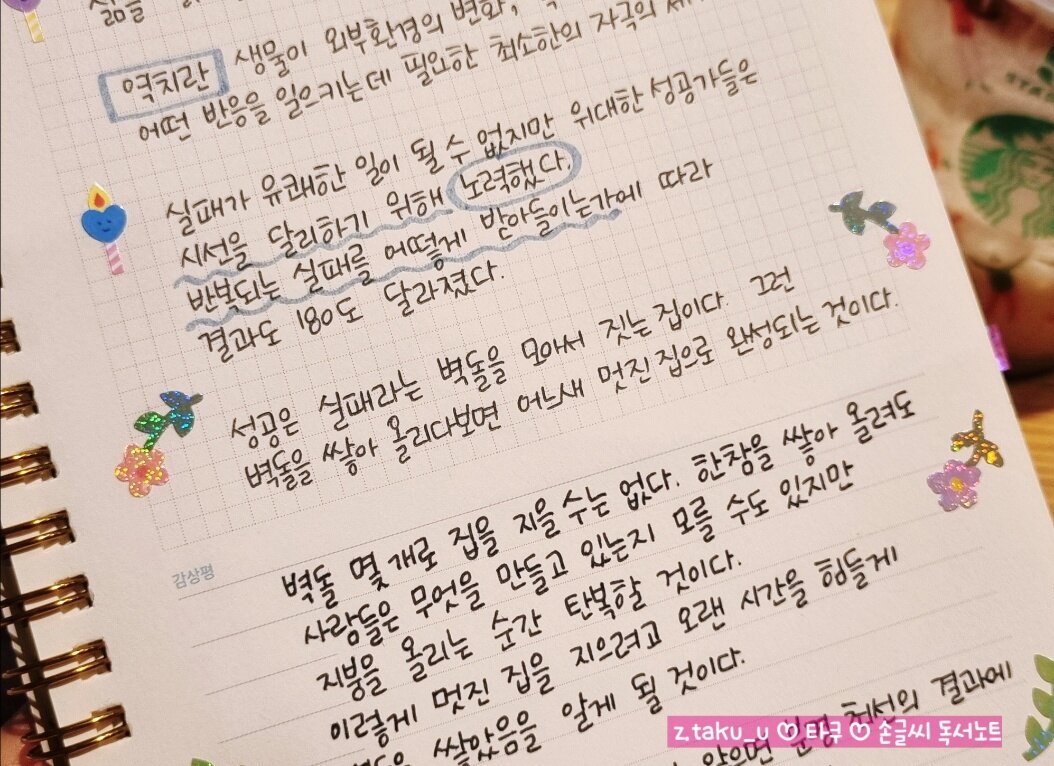 역치란 생물이 외부환경의 변화,
어떤 반응을 일으키는데 필요한 최소한의 자극의
실패가 유쾌한 일이 될 수 없지만 위대한 성공가들은
시선을 달리하기 위해 노력했다.
반복되는 실패를 어떻게 받아들이는가에 따라
결과도 180도 달라졌다.
성공은 실패라는 벽돌을 모아서 짓는 집이다. 그런
벽돌을 쌓아 올리다보면 어느새 멋진 집으로 완성되는 것이다.
감상평
벽돌 몇 개로 집을 지을 수는 없다. 한참을 쌓아 올려도
사람들은 무엇을 만들고 있는지 모를 수도 있지만
지붕을 올리는 순간 탄복할 것이다.
이렇게 멋진 집을 지으려고 오랜 시간을 힘들게
쌓았음을 알게 될 것이다.
최선의 결과에
z.taku_u ♡ 타쿠 ♡ 손글씨 독서노트